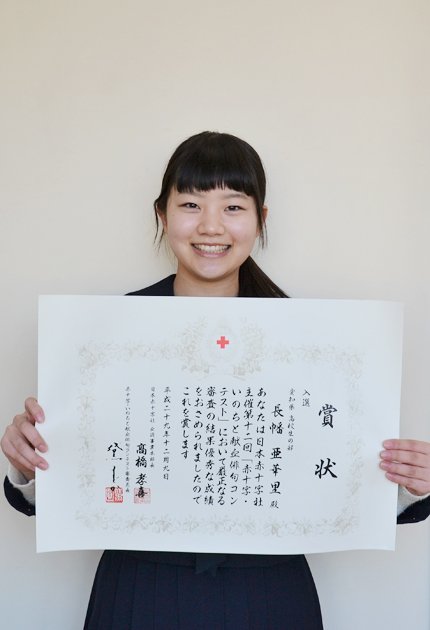 賞状
入選
愛知県 高校生の部
長幡 亜華里 殿
あなたは日本赤十字社
主催第十二回「赤十字・
いのちと献血俳句コン
テスト」において厳正なる
審査の結果優秀な成績
をおさめられましたので
これを賞します
平成二十九年十二月九日
日本赤十字社 血液事業本部長
高橋 孝喜
赤十字・いのちと献血俳句コンテスト審査委員長